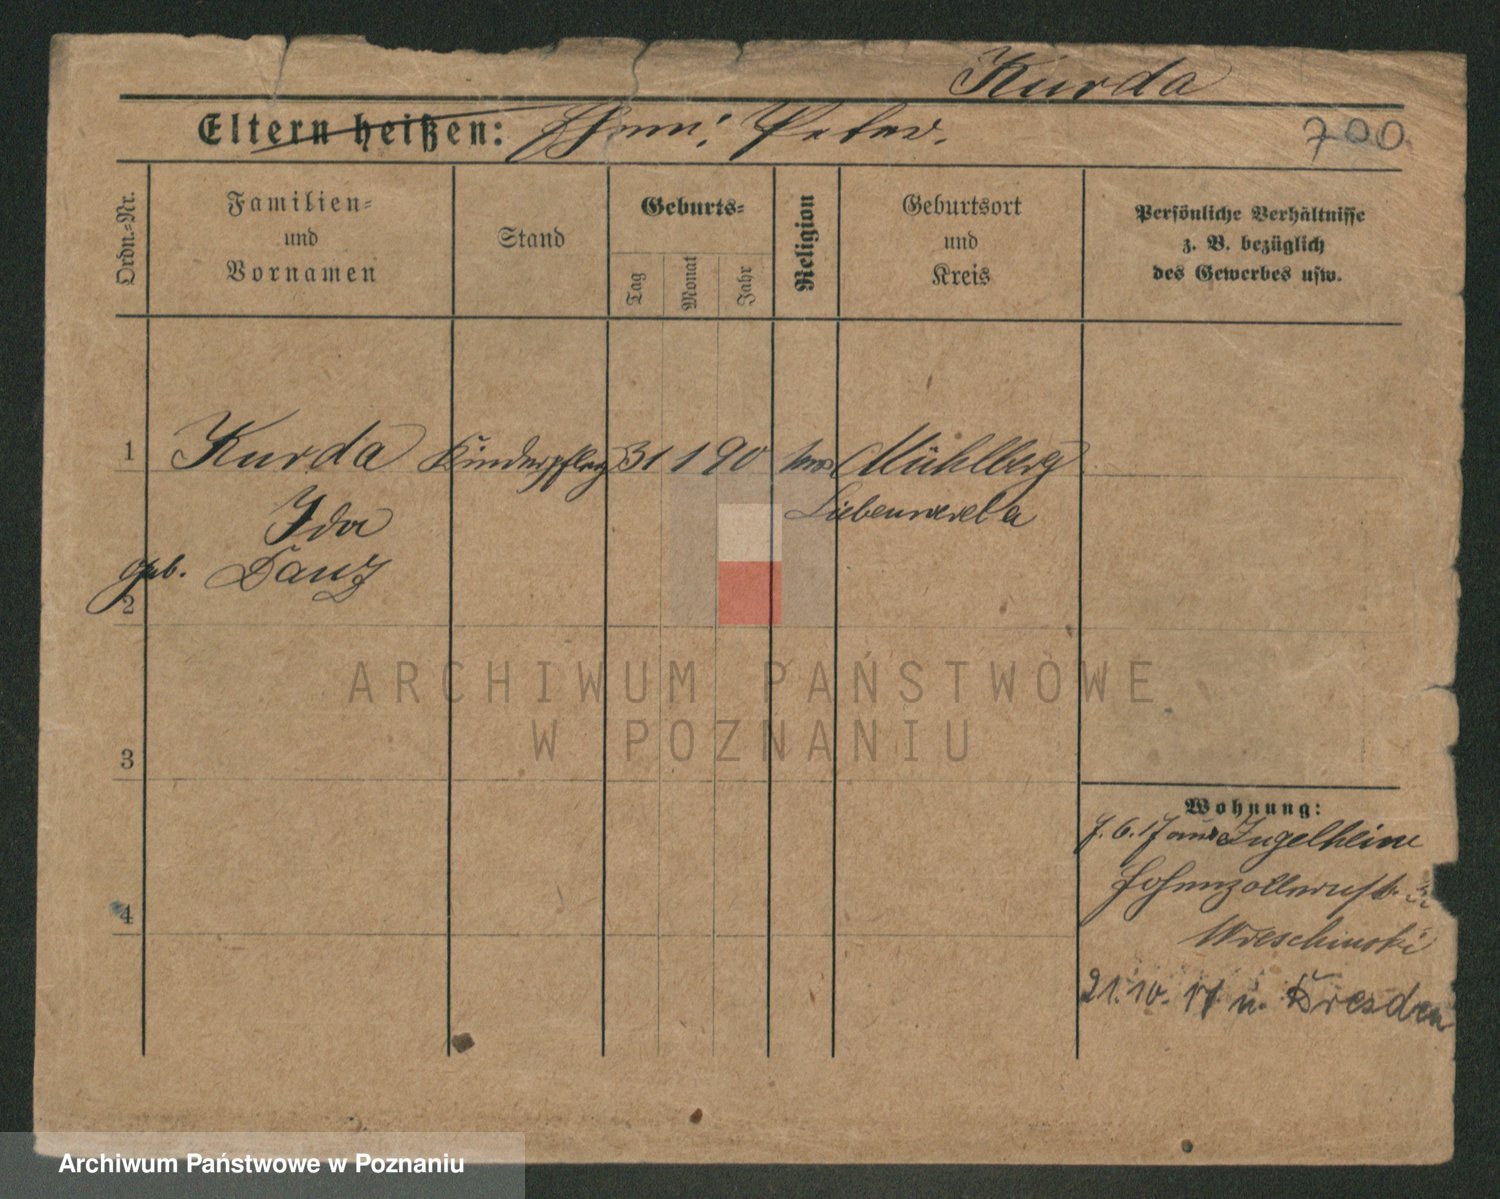 Kurda
Eltern heißen: Ehem: Peter.
700
Ordn.-Nr.
Familien-
und
Vornamen
Stand
Geburts-
Tag
Monat
Jahr
Religion
Geburtsort
und
Kreis
Persönliche Verhältnisse
z. B. bezüglich
des Gewerbes usw.
1 Kurda Kinderpfleg 31 1 90 Mühlberg
Ida Liebenwerda
geb. Danz
2
3
4
Wohnung:
7. 6. 17 aus Ingelheim
Hohenzollernstr.
Wreschinski
21. 10. 17 n. Dresden
ARCHIWUM PAŃSTWOWE
W POZNANIU
Archiwum Państwowe w Poznaniu